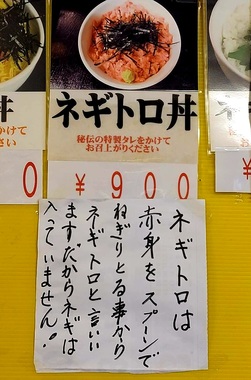 丼
ネギトロ丼
秘伝の特製タレをかけて
お召上がりください
かけて
さい
0
￥900
￥
ネギトロは
赤身をスプーンで
ねぎりとる事から
ネギトロと言い
ますだからネギは
入っていません！